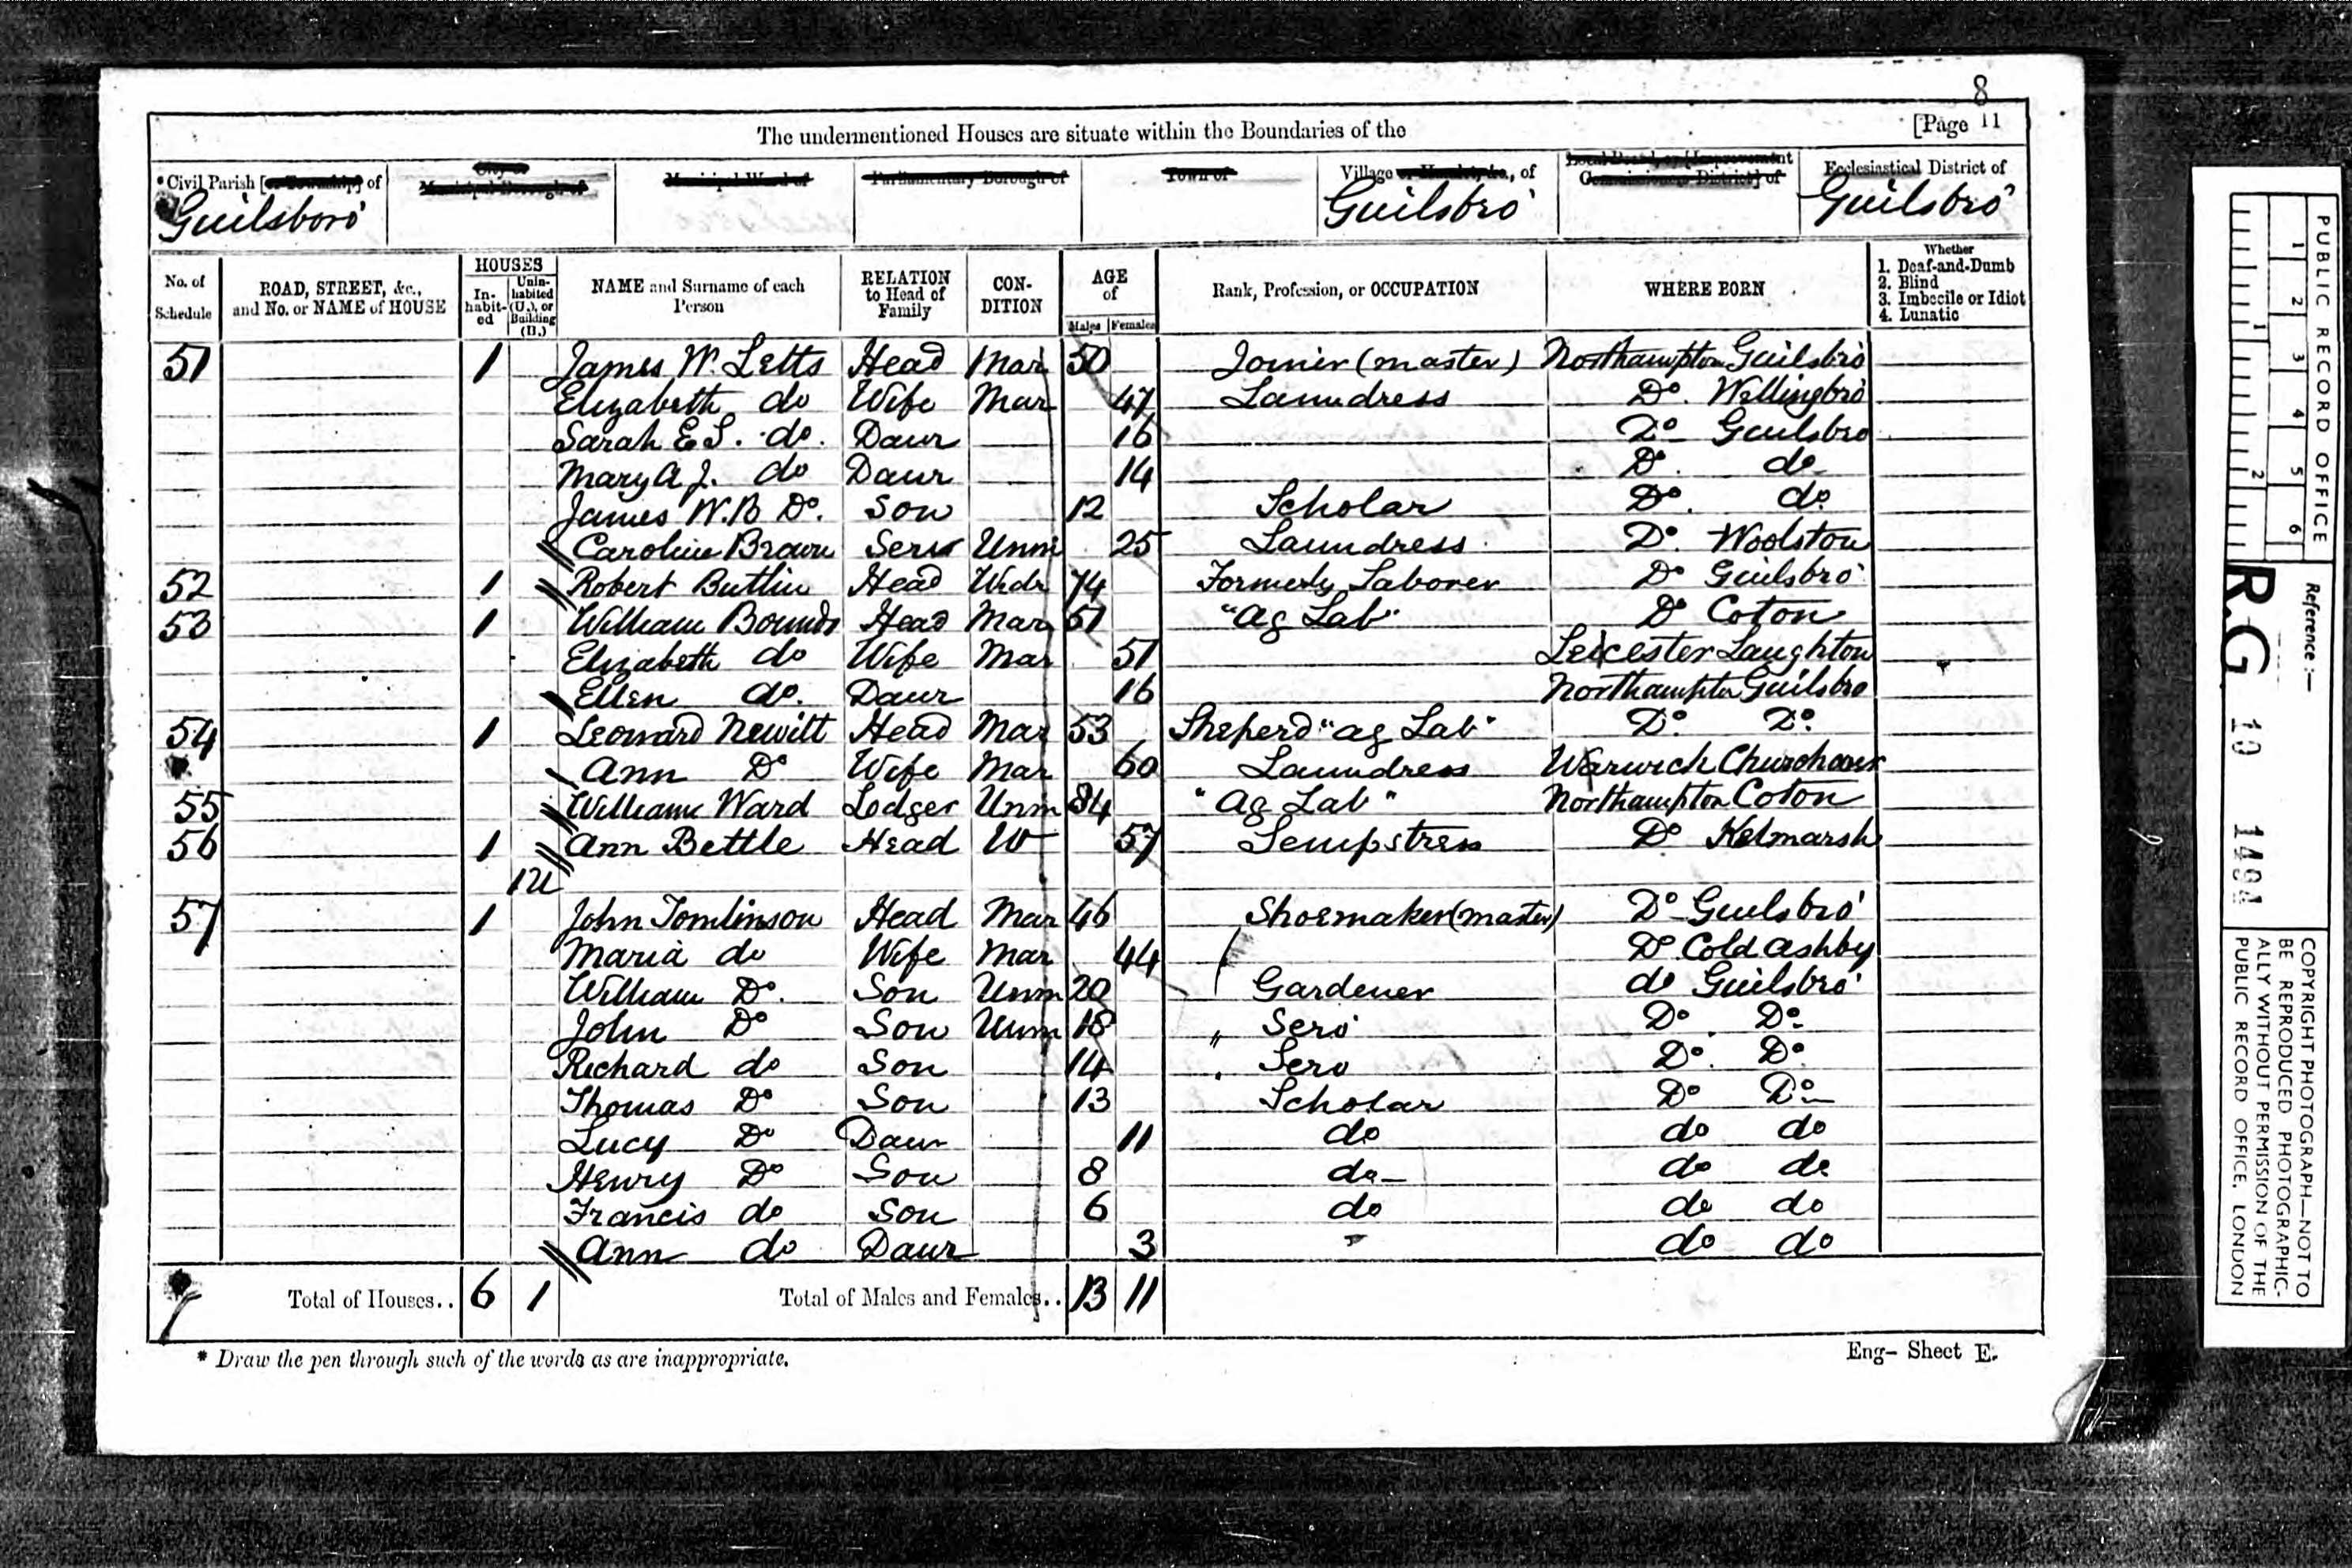 8
The undermentioned Houses are situate within the Boundaries of the [Page 11
*Civil Parish [or Township] of City or Municipal Borough of Municipal Ward of Parliamentary Borough of Town of Village or Hamlet, &c., of Local Board, or [Improvement Commissioners District] of Ecclesiastical District of
Guilsboro' Guilsbro' Guilsbro'
No. of Schedule ROAD, STREET, &c., and No. or NAME of HOUSE HOUSES In-habit-ed Unin-habited (U.), or Building (B.) NAME and Surname of each Person RELATION to Head of Family CON-DITION AGE of Males Females Rank, Profession, or OCCUPATION WHERE BORN Whether 1. Deaf-and-Dumb 2. Blind 3. Imbecile or Idiot 4. Lunatic
51 1 James W. Letts Head Mar 50 Joiner (master) Northampton Guilsbro
Elizabeth do Wife Mar 47 Laundress Do. Wellingbro
Sarah E S. do. Daur 16 Do Guilsbro
Mary A J. do Daur 14 Do. do
James W.B Do. Son 12 Scholar Do. do.
Caroline Brown Serv Unm 25 Laundress Do. Woolston
52 1 Robert Butlin Head Widr 74 Formerly Laborer Do Guilsbro'
53 1 William Bounds Head Mar 51 "Ag Lab" Do Coton
Elizabeth do Wife Mar 51 Leicester Laughton
Ellen do. Daur 16 Northampton Guilsbro
54 1 Leonard Newitt Head Mar 53 Sheperd "ag Lab" Do. Do.
Ann Do Wife Mar 60 Laundress Warwick
55 William Ward Lodger Unm 84 "Ag Lab" Northampton Coton
56 1 Ann Bettle Head W 57 Sempstress Do Kelmarsh
1U
57 1 John Tomlinson Head Mar 46 Shoemaker (master) Do Guilsbro'
Maria do Wife Mar 44 Do Cold ashby
William Do. Son Unm 20 Gardener do Guilsbro'
John Do Son Unm 18 " Serv Do. Do.
Richard do Son 14 " Serv Do. Do.
Thomas Do Son 13 Scholar Do Do
Lucy Do Daur 11 do do do
Henry Do Son 8 do do do
Francis do Son 6 do do do
Ann do Daur 3 do do
Total of Houses.. 6 1 Total of Males and Females.. 13 11
* Draw the pen through such of the words as are inappropriate.
Eng- Sheet E.
PUBLIC RECORD OFFICE
1 2 3 4 5 6
1 2
Reference:-
RG 10 1494
COPYRIGHT PHOTOGRAPH—NOT TO
BE REPRODUCED PHOTOGRAPHIC-
ALLY WITHOUT PERMISSION OF THE
PUBLIC RECORD OFFICE, LONDON